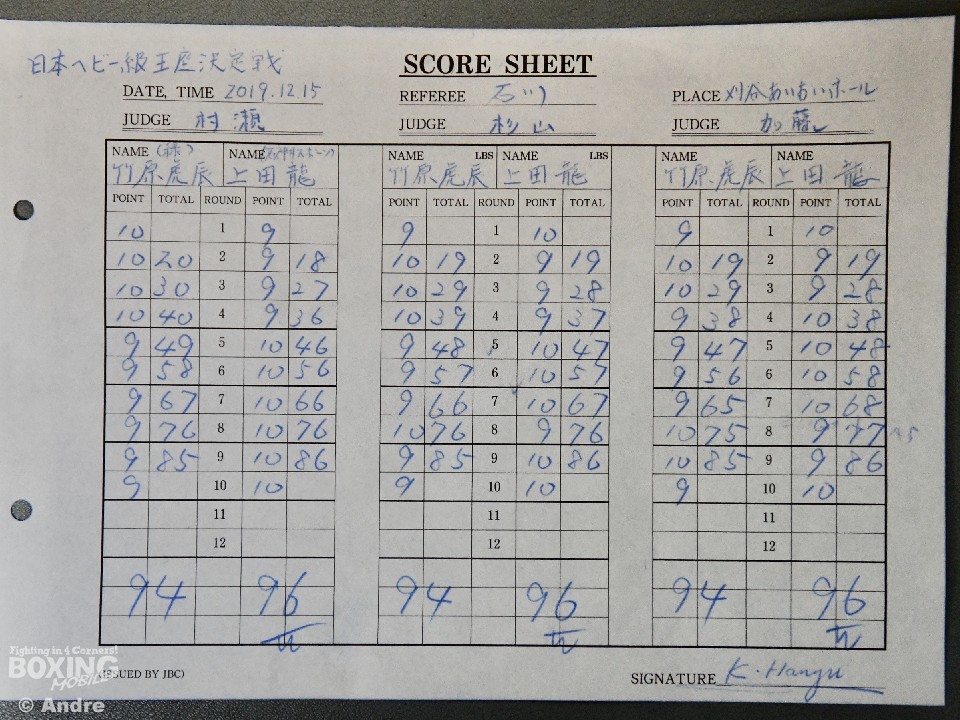 日本ヘビー級王座決定戦
SCORE SHEET
DATE, TIME 2019.12.15 REFEREE 石川 PLACE 刈谷あいおいホール
JUDGE 村瀬 JUDGE 杉山 JUDGE 加藤
NAME NAME NAME LBS NAME LBS NAME NAME
竹原虎辰 上田龍 竹原虎辰 上田龍 竹原虎辰 上田龍
POINT TOTAL ROUND POINT TOTAL POINT TOTAL ROUND POINT TOTAL POINT TOTAL ROUND POINT TOTAL
10 1 9 9 1 10 9 1 10
10 20 2 9 18 10 19 2 9 19 10 19 2 9 19
10 30 3 9 27 10 29 3 9 28 10 29 3 9 28
10 40 4 9 36 10 39 4 9 37 9 38 4 10 38
9 49 5 10 46 9 48 5 10 47 9 47 5 10 48
9 58 6 10 56 9 57 6 10 57 9 56 6 10 58
9 67 7 10 66 9 66 7 10 67 9 65 7 10 68
9 76 8 10 76 10 76 8 9 76 10 75 8 9 77
9 85 9 10 86 9 85 9 10 86 10 85 9 9 86
9 10 10 9 10 10 9 10 10
11 11 11
12 12 12
94 96 94 96 94 96
Fighting in 4 Corners!
BOXING
MOBILE
ISSUED BY JBC)
SIGNATURE K. Hangu
© Andre